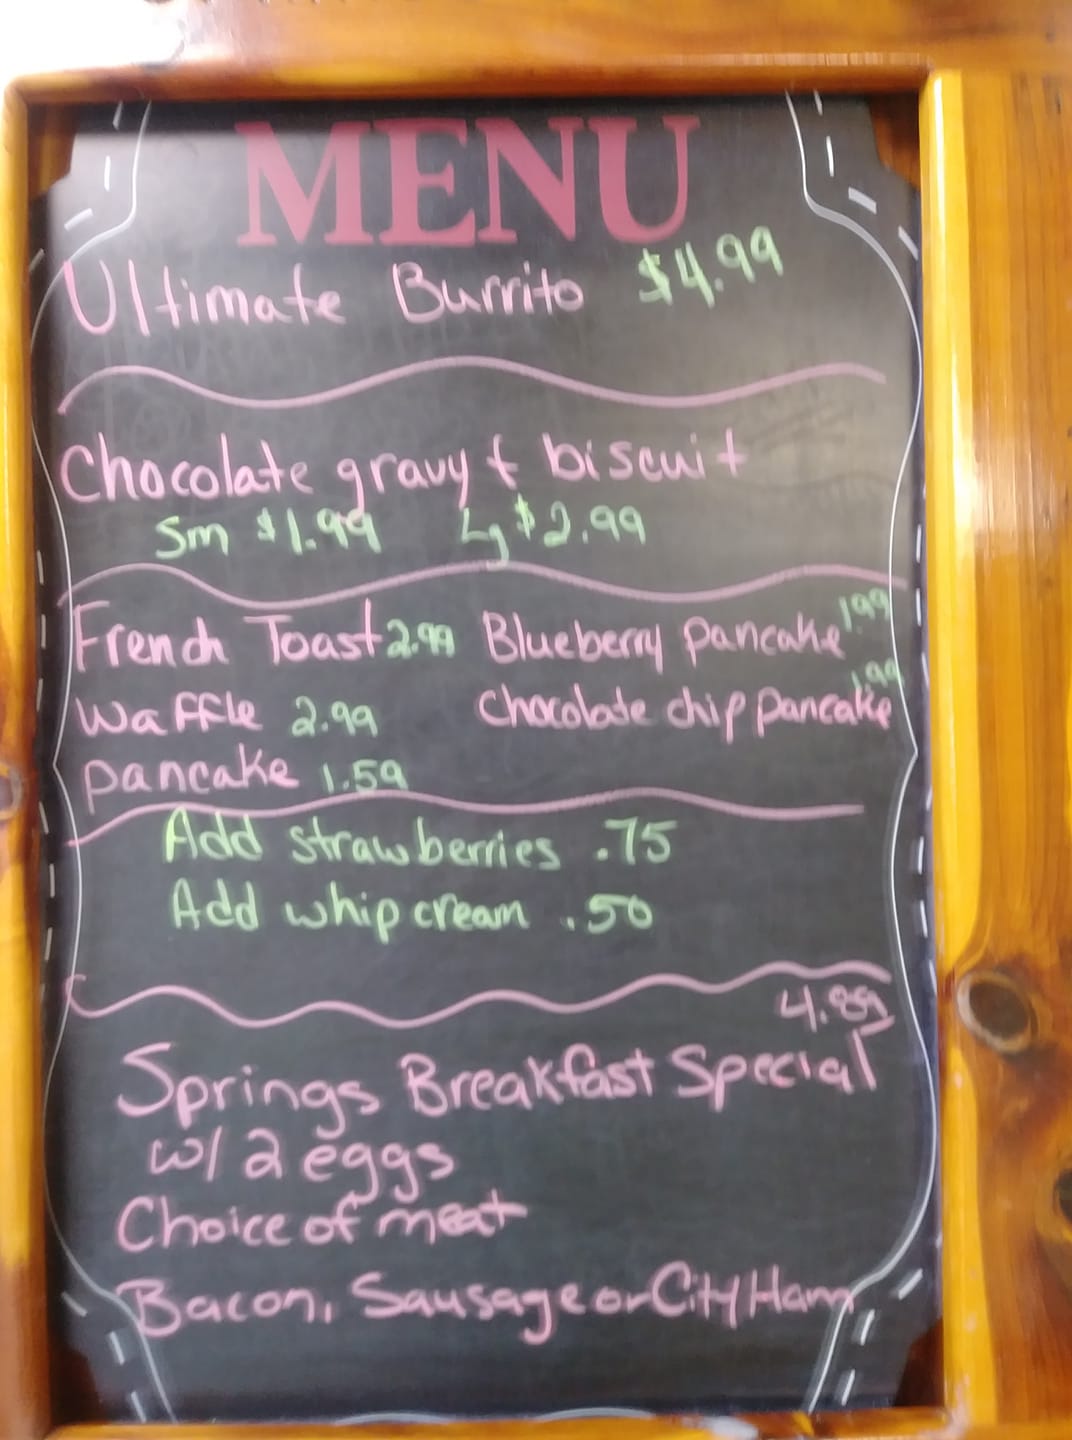 MENU
Ultimate Burrito $4.99
Chocolate gravy & biscuit
Sm $1.99 Lg $2.99
French Toast 2.99 Blueberry pancake 1.99
Waffle 2.99 Chocolate chip pancake 1.99
pancake 1.59
Add strawberries .75
Add whip cream .50
4.89
Springs Breakfast Special
w/ 2 eggs
Choice of meat
Bacon, Sausage or City Ham